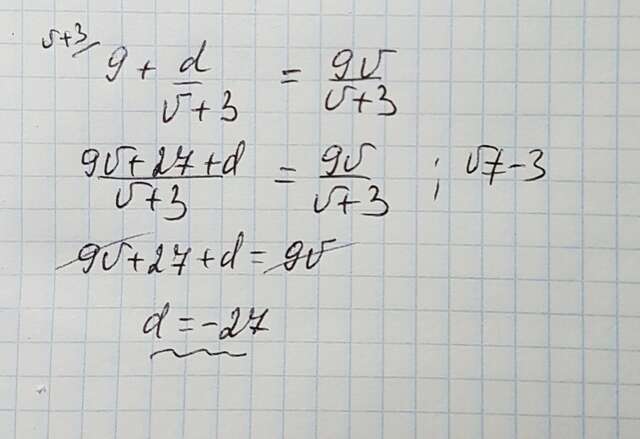 v+3/ 9 + d/(v+3) = 9v/(v+3)
(9v+27+d)/(v+3) = 9v/(v+3) ; v≠-3
9v+27+d=9v
d=-27